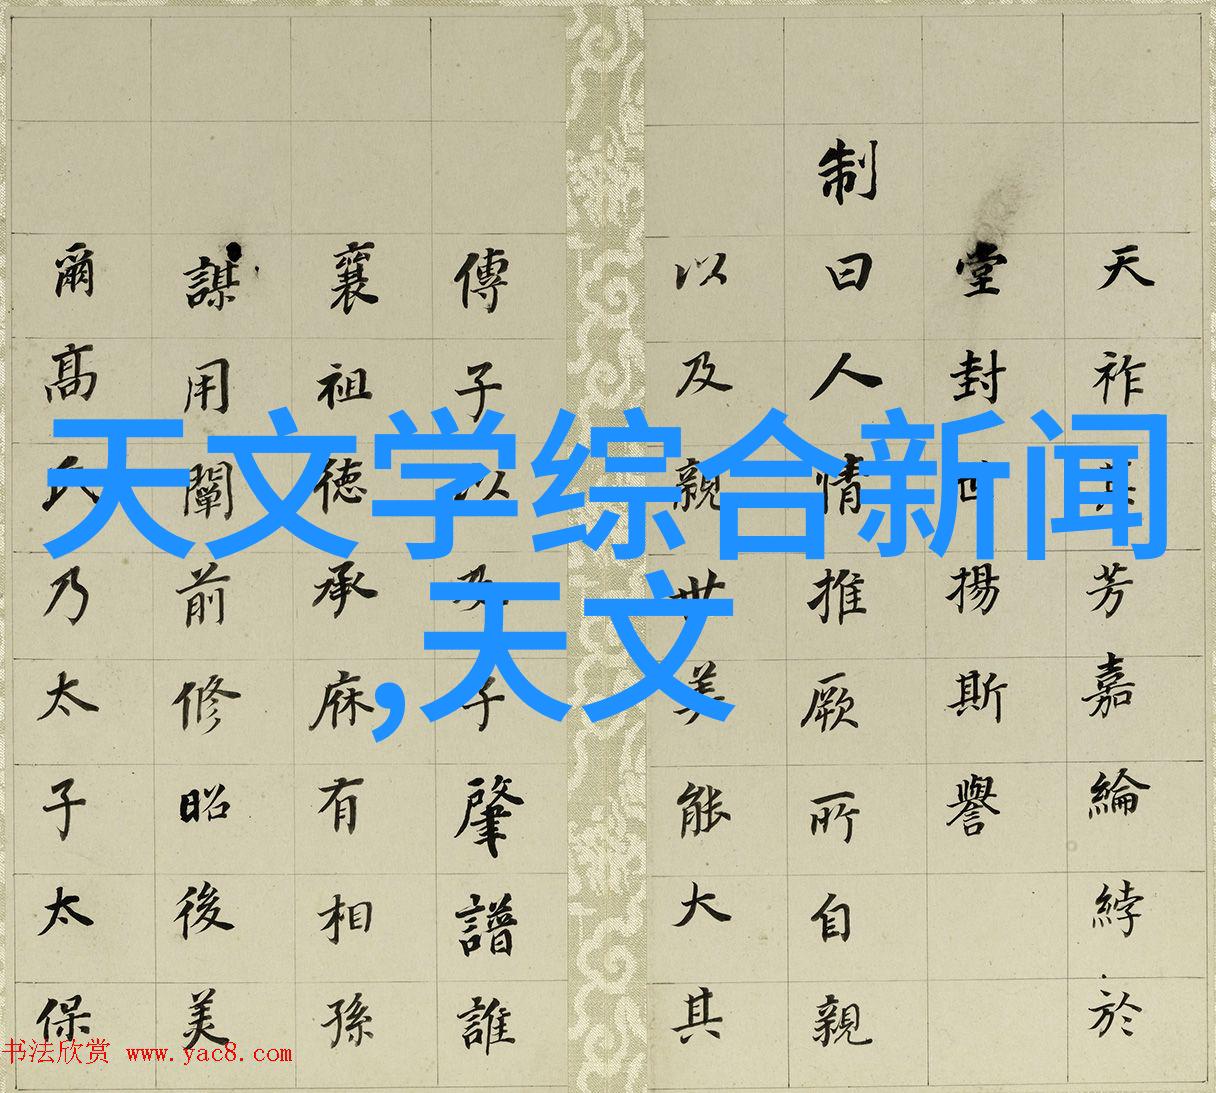 天祚其芳嘉綸綍於
堂封世揚斯譽
制曰人情推厥所自親
以及親世美能大其
傳子以及子肇譜誰
襄祖徳承庥有相孫
謀用闡前修昭後美
爾高氏乃太子太保
天文学综合新闻
,天文
书法欣赏 www.yac8.com